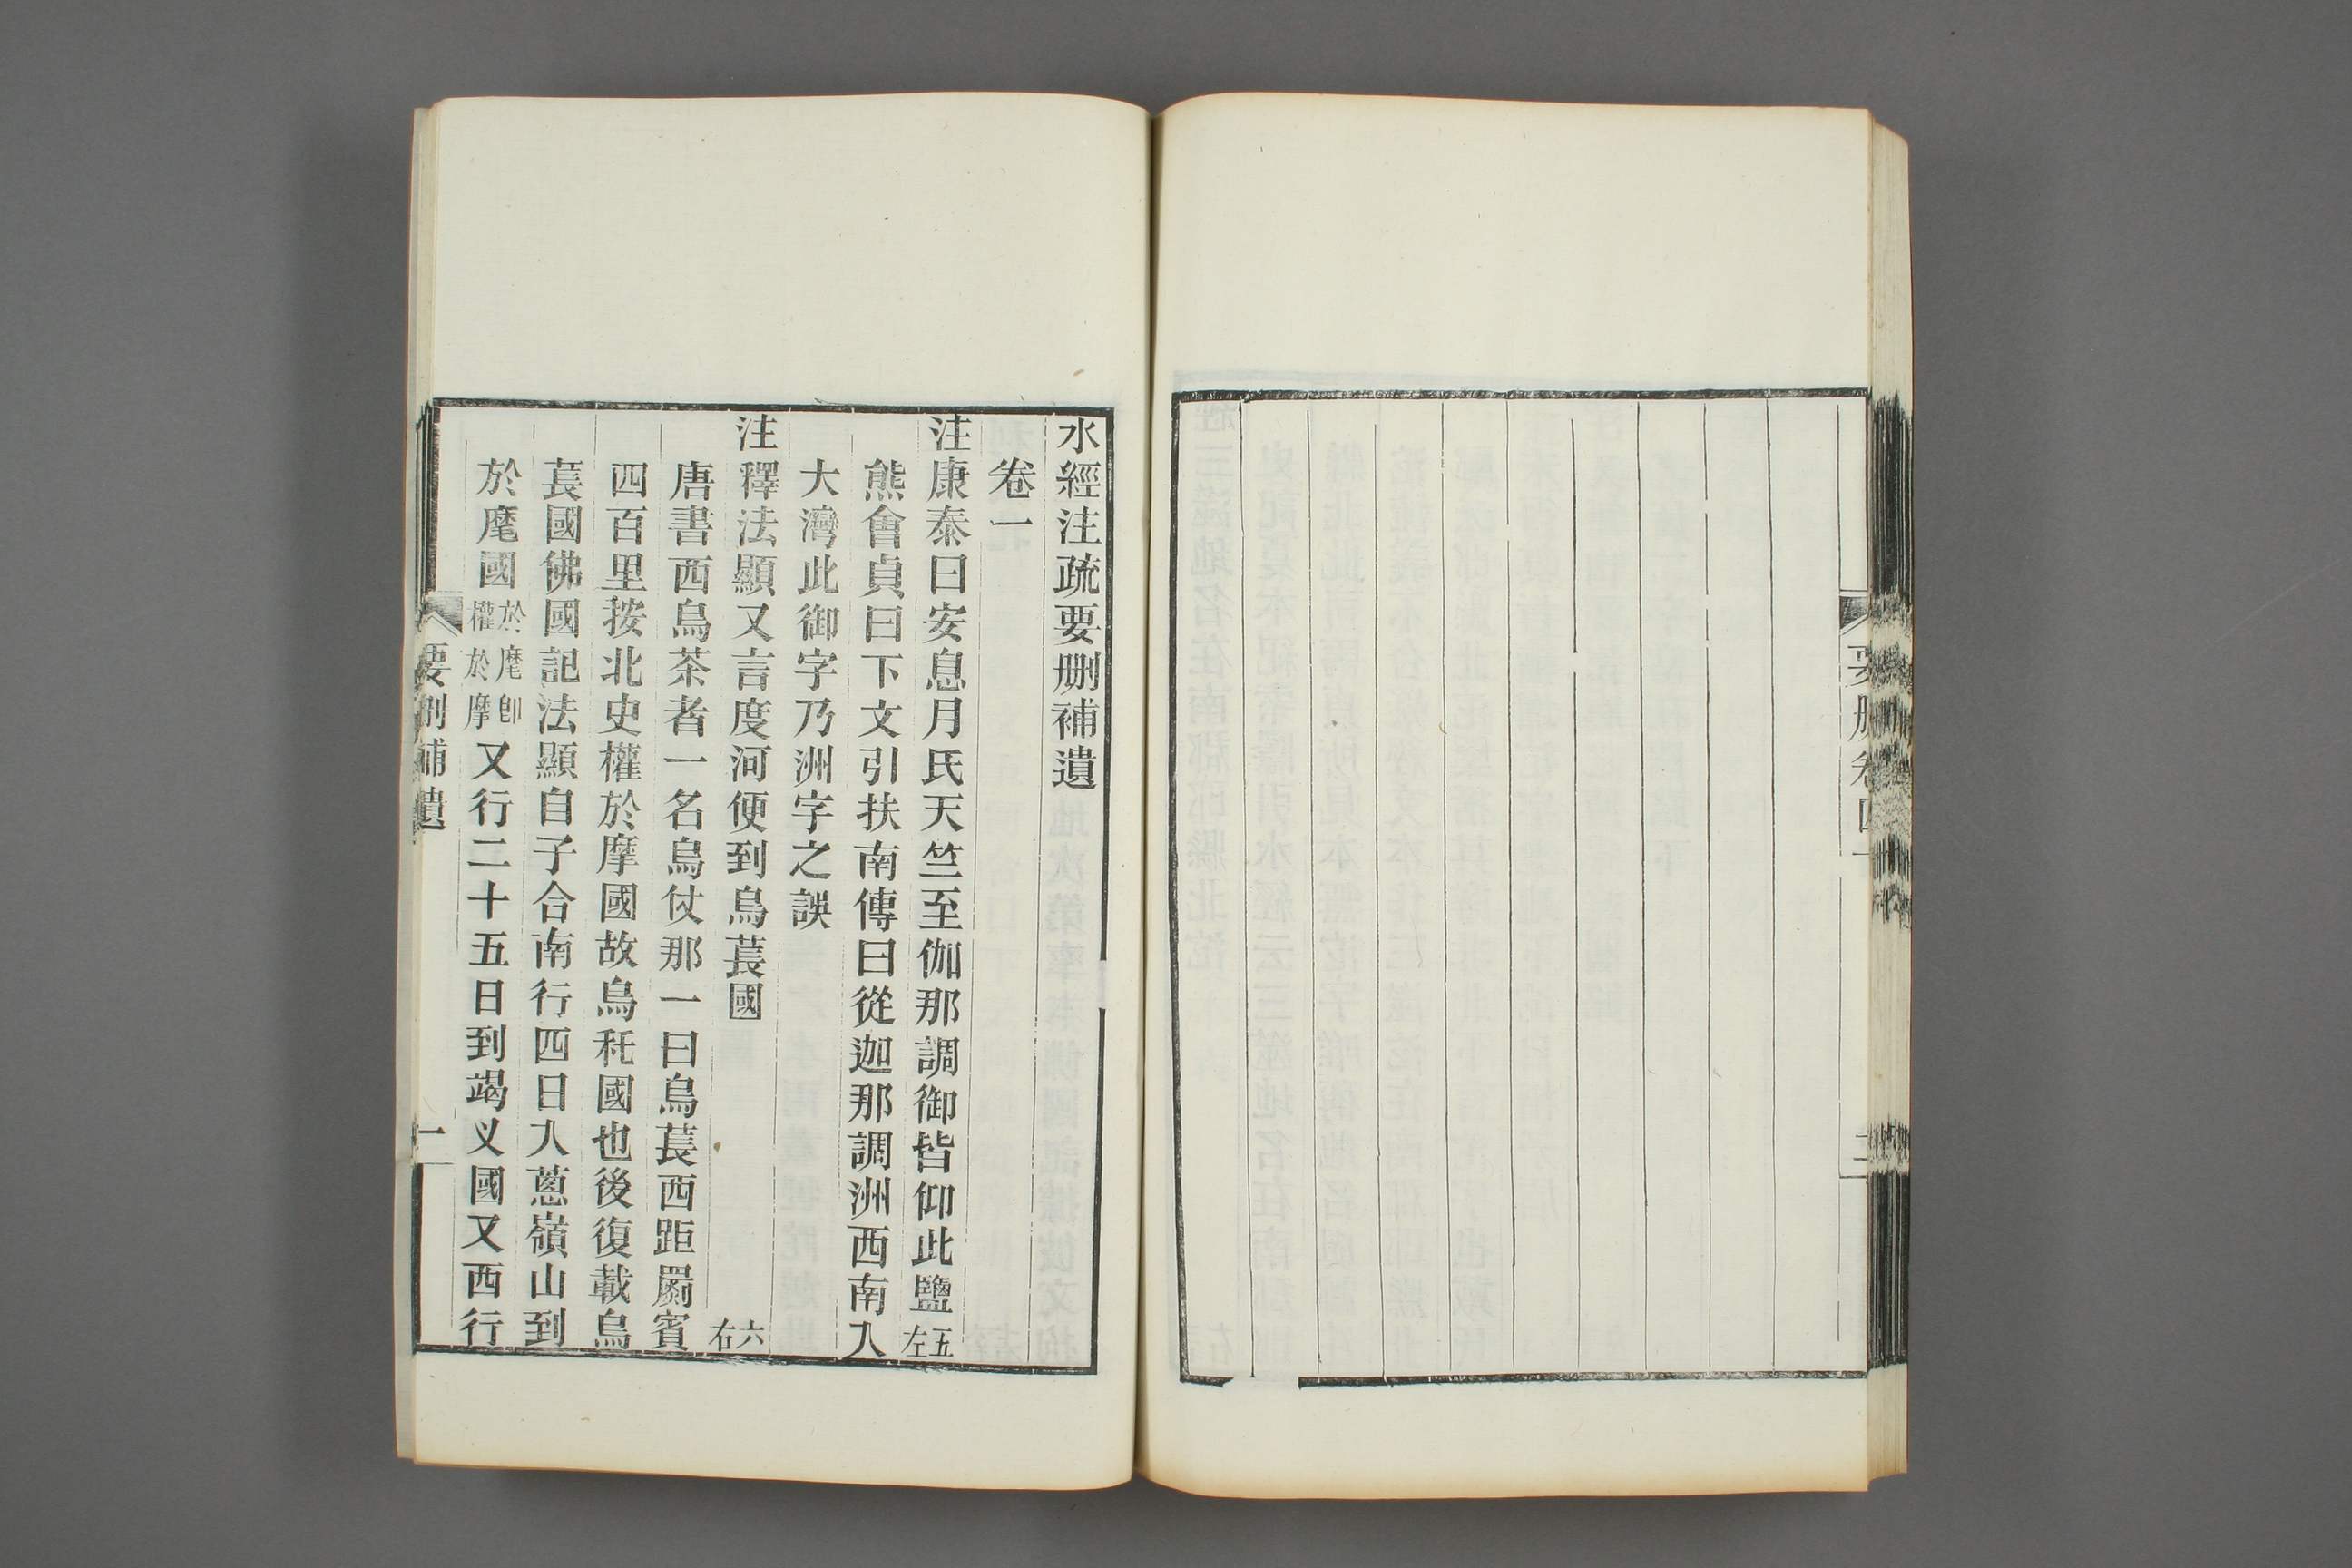 要刪卷四十
二
水經注疏要刪補遺
卷一
注康泰曰安息月氏天竺至伽那調御皆仰此鹽五左
熊會貞曰下文引扶南傳曰從迦那調洲西南入
大灣此御字乃洲字之誤
注釋法顯又言度河便到烏萇國六右
唐書西烏茶者一名烏仗那一曰烏萇西距罽賓
四百里按北史權於摩國故烏秅國也後復載烏
萇國佛國記法顯自子合南行四日入蔥嶺山到
於麾國於麾卽權於摩又行二十五日到竭乂國又西行
要刪補遺
一